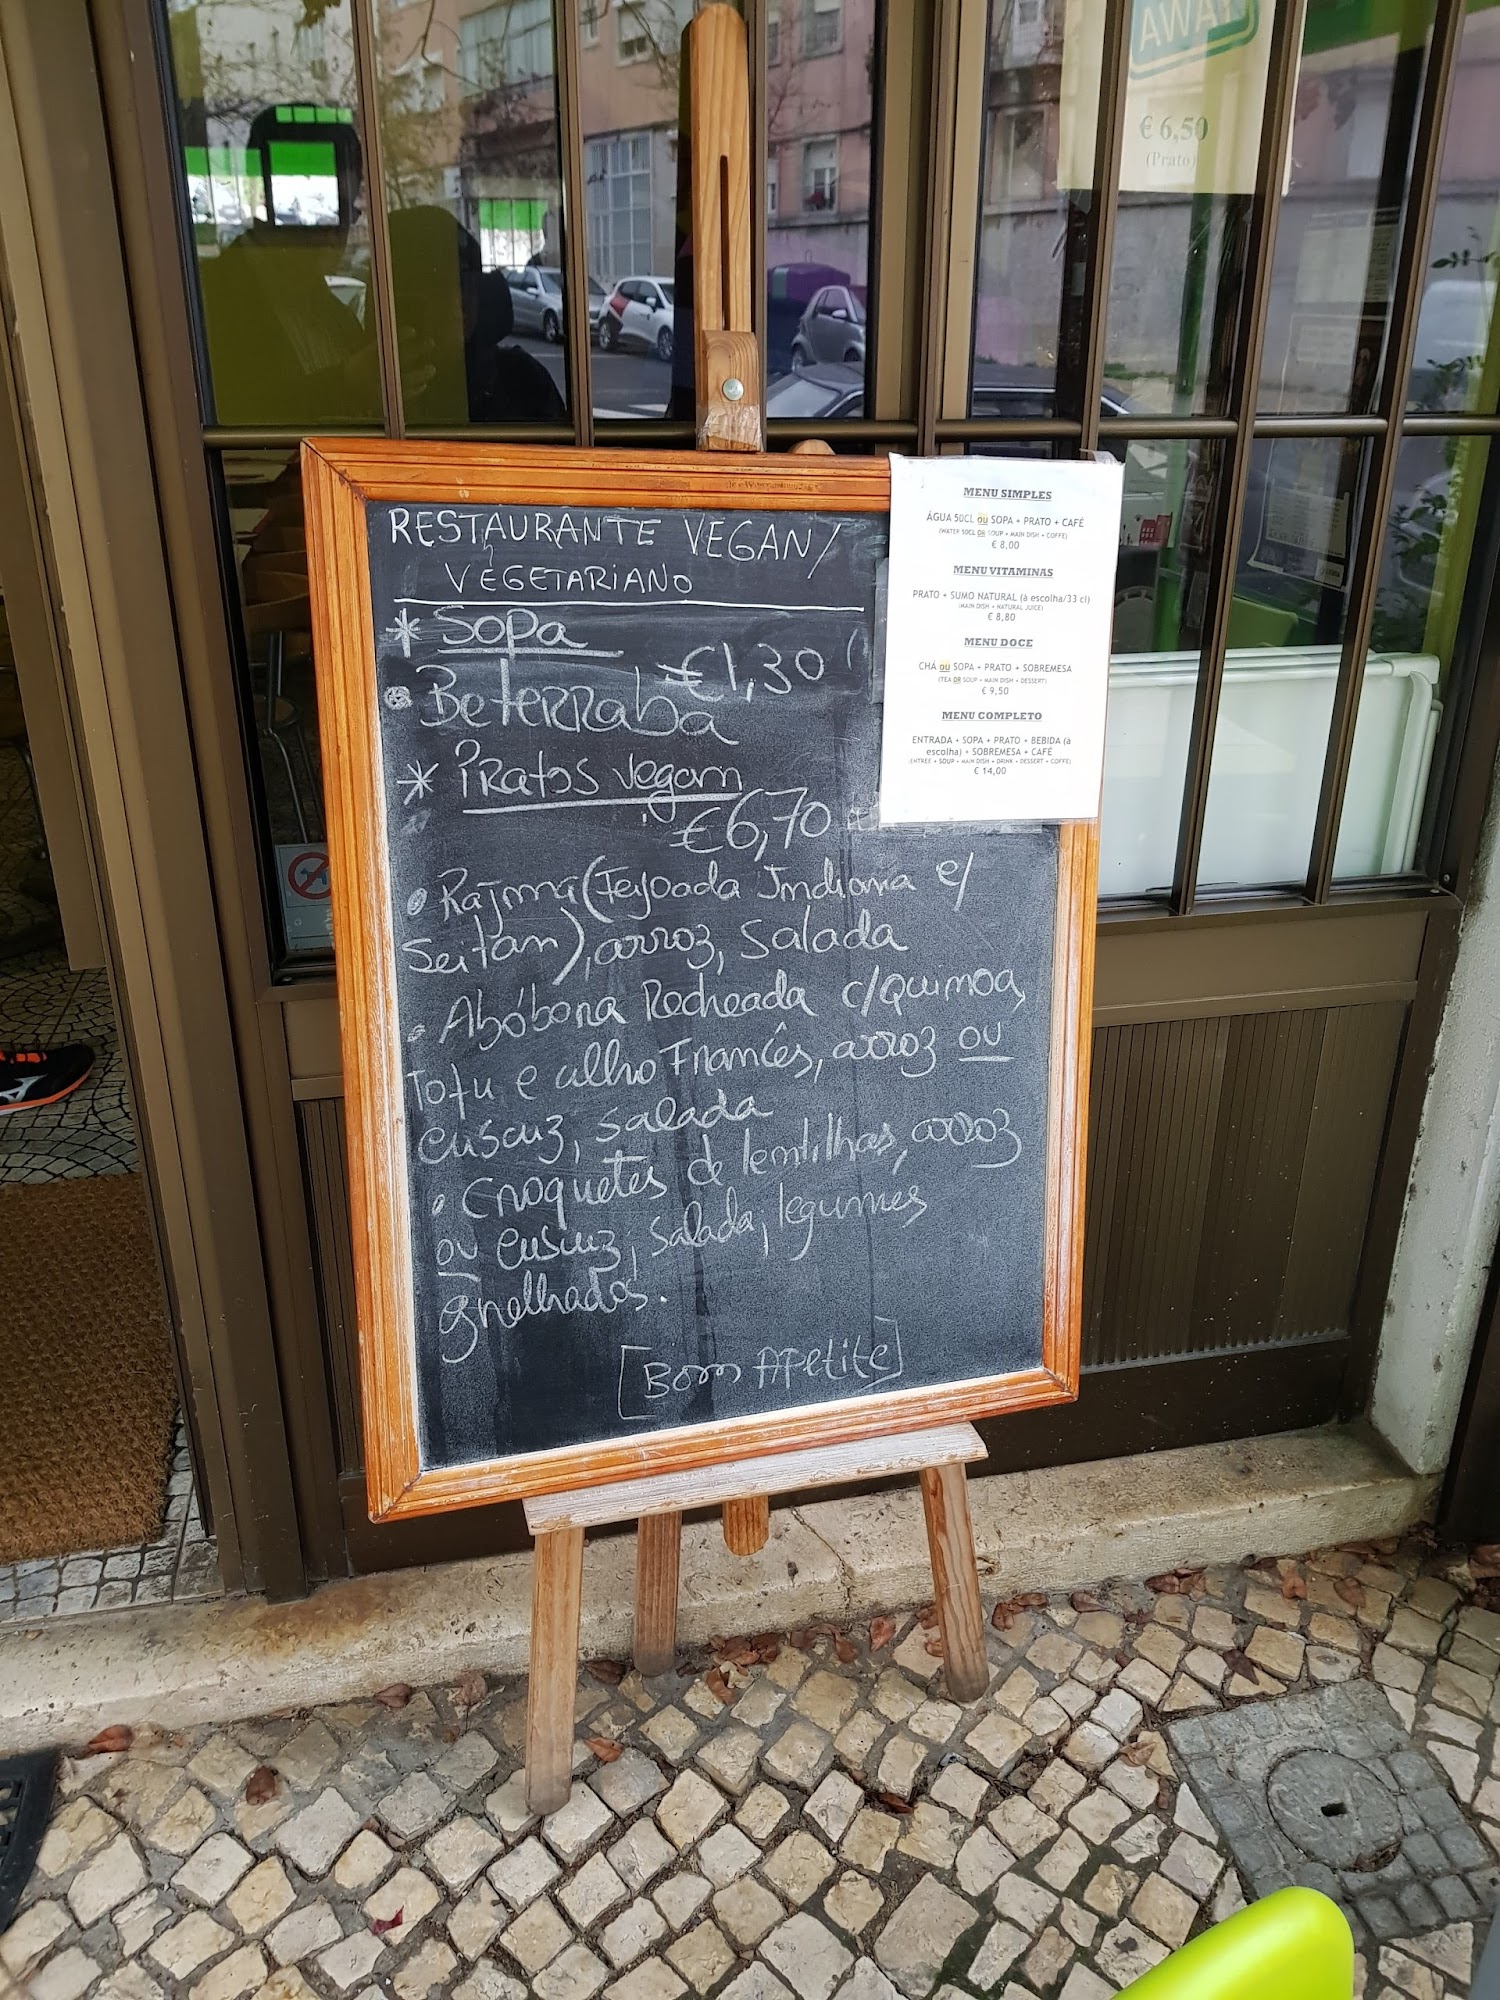 RESTAURANTE VEGAN/
VEGETARIANO
* Sopa
€1,30
• Beterraba
* Pratos vegan
€6,70
• Rajma (Feijoada Indiana c/
Seitan), arroz, salada
• Abóbora Recheada c/ Quinoa,
Tofu e alho Francês, arroz ou
cuscuz, salada
• Croquetes de lentilhas, arroz
ou cuscuz, salada, legumes
grelhados.
[Bom Apetite]
MENU SIMPLES
ÁGUA 50CL ou SOPA + PRATO + CAFÉ
(WATER 50CL OR SOUP + MAIN DISH + COFFE)
€ 8,00
MENU VITAMINAS
PRATO + SUMO NATURAL (à escolha/33 cl)
(MAIN DISH + NATURAL JUICE)
€ 8,80
MENU DOCE
CHÁ ou SOPA + PRATO + SOBREMESA
(TEA OR SOUP + MAIN DISH + DESSERT)
€ 9,50
MENU COMPLETO
ENTRADA + SOPA + PRATO + BEBIDA (à
escolha) + SOBREMESA + CAFÉ
(ENTREE + SOUP + MAIN DISH + DRINK + DESSERT + COFFE)
€ 14,00
AWAY
€ 6,50
(Prato)